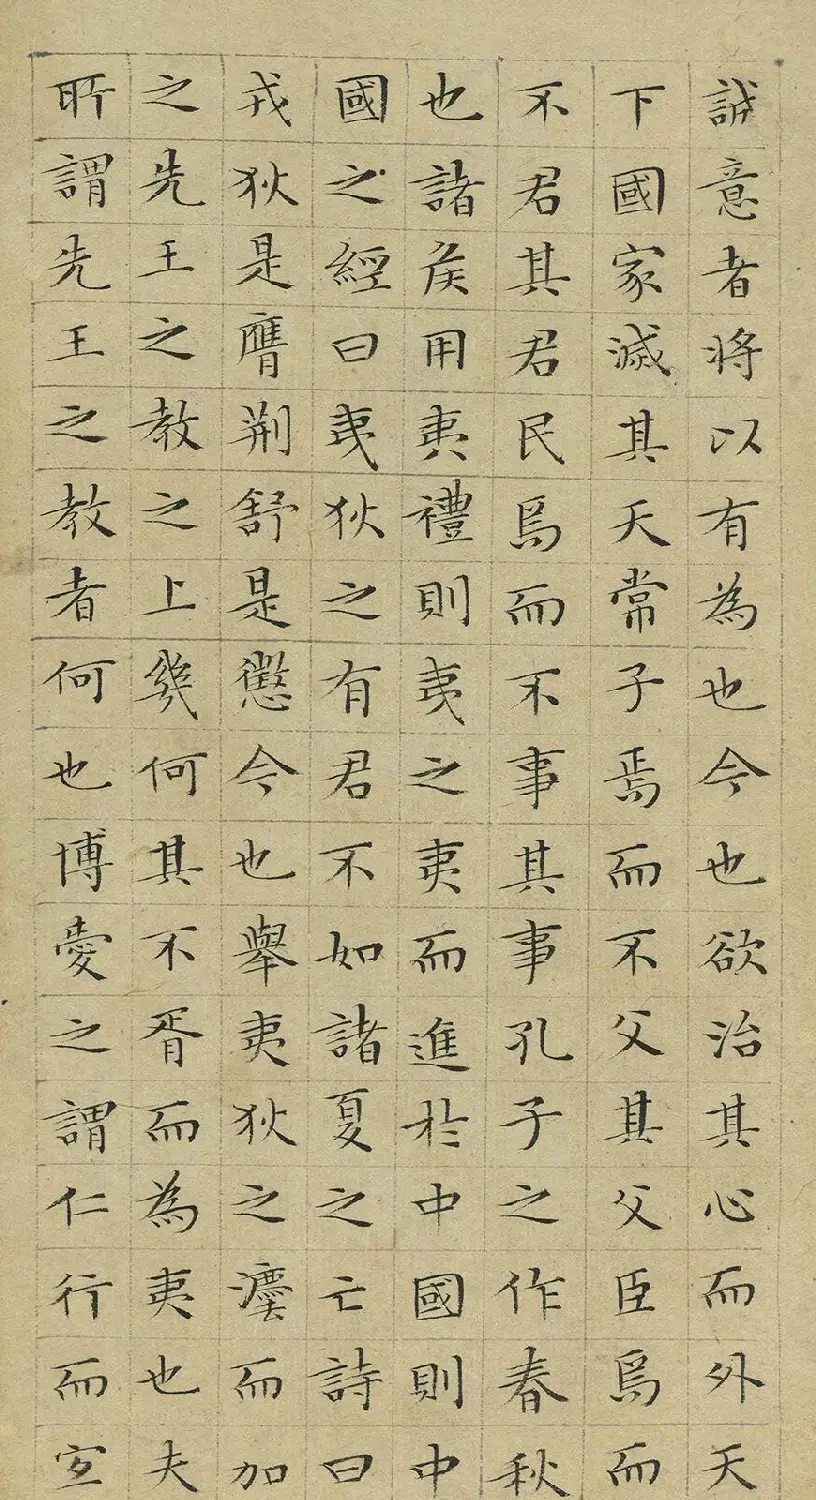 誠意者將以有為也今也欲治其心而外天
下國家滅其天常子焉而不父其父臣焉而
不君其君民焉而不事其事孔子之作春秋
也諸矦用夷禮則夷之夷而進於中國則中
國之經曰夷狄之有君不如諸夏之亡詩曰
戎狄是膺荆舒是懲今也舉夷狄之灋而加
之先王之教之上幾何其不胥而為夷也夫
所謂先王之教者何也博愛之謂仁行而宜